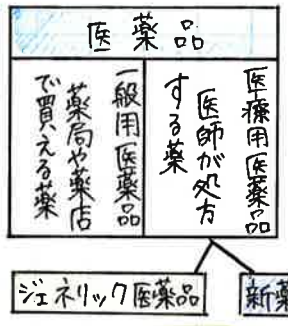 医薬品
医療用医薬品
医師が処方
する薬
一般用医薬品
薬局や薬店
で買える薬
ジェネリック医薬品
新薬